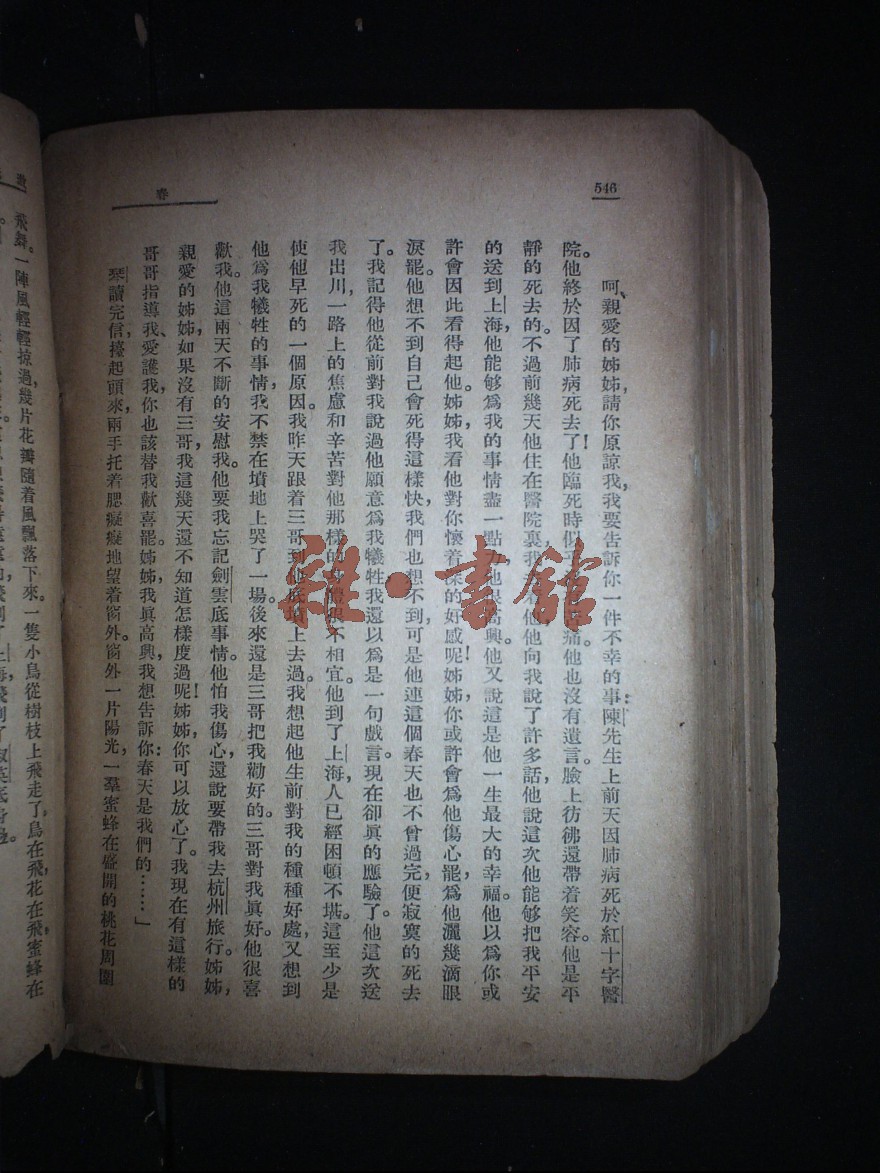 546
春
呵、親愛的姊姊，請你原諒我，我要告訴你一件不幸的事：陳先生上前天因肺病死於紅十字醫
院。他終於因了肺病死去了！他臨死時似乎 痛。他也沒有遺言。臉上彷彿還帶着笑容。他是平
靜的死去的。不過前幾天他住在醫院裏，我 他，他向我說了許多話，他說這次他能够把我平安
的送到上海，他能够爲我的事情盡一點力，他很高興。他又說這是他一生最大的幸福。他以爲你或
許會因此看得起他。姊姊，我看他對你懷着 的好感呢！姊姊，你或許會爲他傷心罷，爲他灑幾滴眼
淚罷。他想不到自己會死得這樣快，我們也想不到，可是他連這個春天也不曾過完，便寂寞的死去
了。我記得他從前對我說過他願意爲我犧牲，我還以爲是一句戲言。現在卻眞的應驗了。他這次送
我出川，一路上的焦慮和辛苦對他那樣的 很不相宜。他到了上海，人已經困頓不堪。這至少是
使他早死的一個原因。我昨天跟着三哥到他底墳上去過。我想起他生前對我的種種好處，又想到
他爲我犧牲的事情，我不禁在墳地上哭了一場。後來還是三哥把我勸好的。三哥對我眞好。他很喜
歡我。他這兩天不斷的安慰我。他要我忘記劍雲底事情。他怕我傷心，還說要帶我去杭州旅行。姊姊，
親愛的姊姊，如果沒有三哥，我這幾天還不知道怎樣度過呢！姊姊，你可以放心了。我現在有這樣的
哥哥指導我、愛護我，你也該替我歡喜罷。姊姊，我眞高興，我想告訴你：春天是我們的……」
琹讀完信，擡起頭來，兩手托着腮癡癡地望着窗外。窗外一片陽光，一羣蜜蜂在盛開的桃花周圍
飛舞。一陣風輕輕掠過，幾片花瓣隨着風飄落下來。一隻小鳥從樹枝上飛走了。鳥在飛，花在飛，蜜蜂在
雜·書館